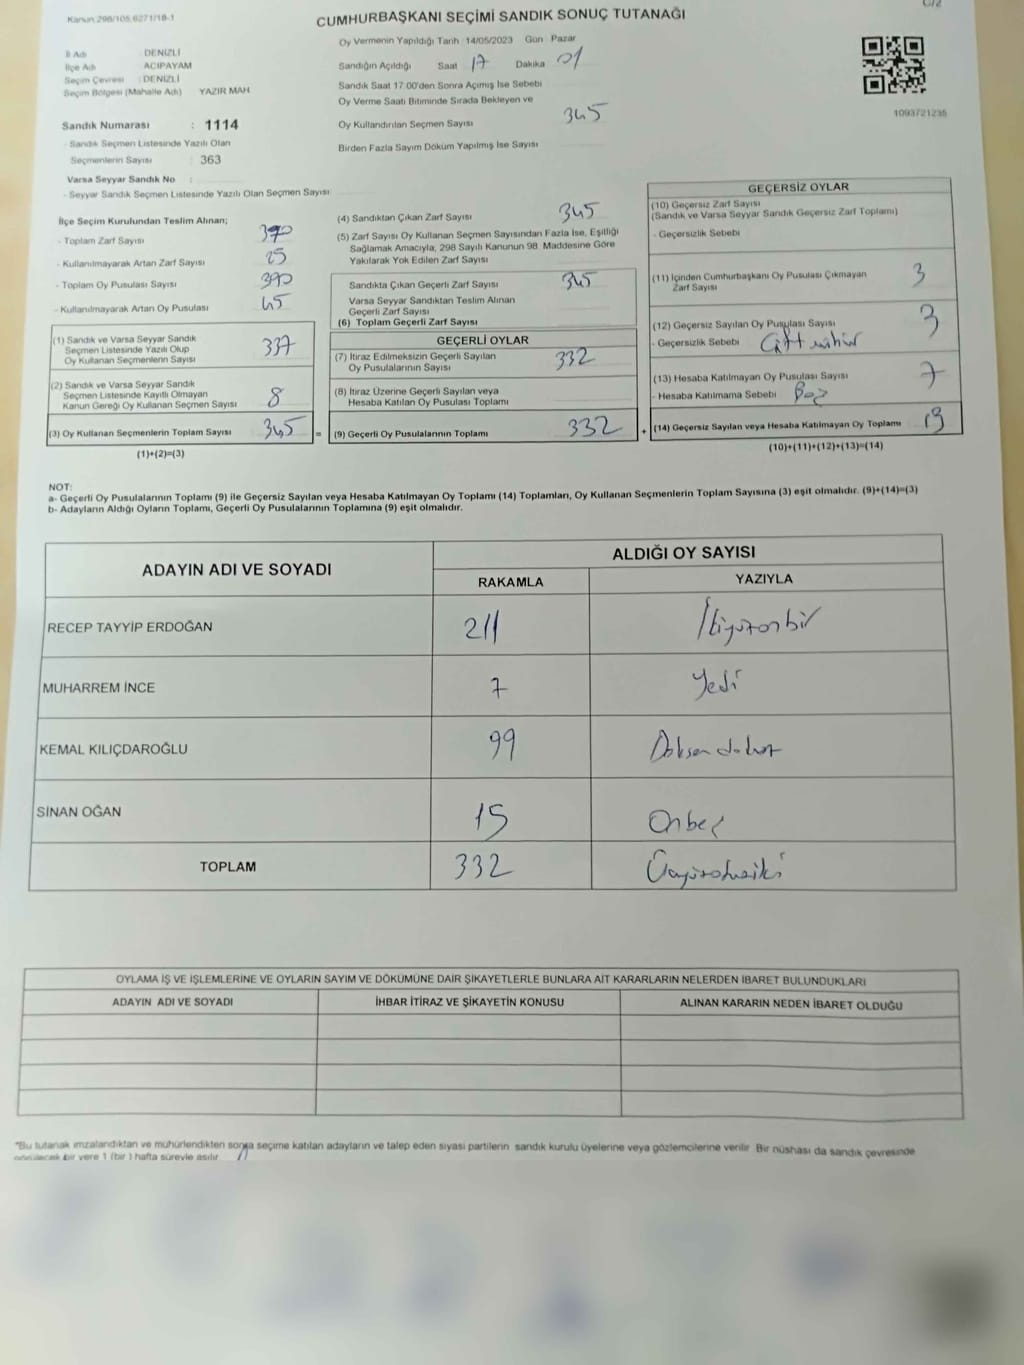 Kanun:298/105,6271/18-1
C/2
CUMHURBAŞKANI SEÇİMİ SANDIK SONUÇ TUTANAĞI
İl Adı : DENİZLİ
İlçe Adı : ACIPAYAM
Seçim Çevresi : DENİZLİ
Seçim Bölgesi (Mahalle Adı) YAZIR MAH
Sandık Numarası : 1114
- Sandık Seçmen Listesinde Yazılı Olan
Seçmenlerin Sayısı : 363
Varsa Seyyar Sandık No :
- Seyyar Sandık Seçmen Listesinde Yazılı Olan Seçmen Sayısı
Oy Vermenin Yapıldığı Tarih 14/05/2023 Gün Pazar
Sandığın Açıldığı Saat 17 Dakika 01
Sandık Saat 17:00'den Sonra Açımış İse Sebebi
Oy Verme Saati Bitiminde Sırada Bekleyen ve
Oy Kullandırılan Seçmen Sayısı 345
Birden Fazla Sayım Döküm Yapılmış İse Sayısı
1093721235
İlçe Seçim Kurulundan Teslim Alınan;
- Toplam Zarf Sayısı 370
- Kullanılmayarak Artan Zarf Sayısı 25
- Toplam Oy Pusulası Sayısı 390
- Kullanılmayarak Artan Oy Pusulası 45
(1) Sandık ve Varsa Seyyar Sandık
Seçmen Listesinde Yazılı Olup
Oy Kullanan Seçmenlerin Sayısı 337
(2) Sandık ve Varsa Seyyar Sandık
Seçmen Listesinde Kayıtlı Olmayan
Kanun Gereği Oy Kullanan Seçmen Sayısı 8
(3) Oy Kullanan Seçmenlerin Toplam Sayısı 345 =
(1)+(2)=(3)
(4) Sandıktan Çıkan Zarf Sayısı 345
(5) Zarf Sayısı Oy Kullanan Seçmen Sayısından Fazla İse, Eşitliği
Sağlamak Amacıyla, 298 Sayılı Kanunun 98. Maddesine Göre
Yakılarak Yok Edilen Zarf Sayısı
Sandıkta Çıkan Geçerli Zarf Sayısı 345
Varsa Seyyar Sandıktan Teslim Alınan
Geçerli Zarf Sayısı
(6) Toplam Geçerli Zarf Sayısı
GEÇERLİ OYLAR
(7) İtiraz Edilmeksizin Geçerli Sayılan
Oy Pusulalarının Sayısı 332
(8) İtiraz Üzerine Geçerli Sayılan veya
Hesaba Katılan Oy Pusulası Toplamı
(9) Geçerli Oy Pusulalarının Toplamı 332 +
GEÇERSİZ OYLAR
(10) Geçersiz Zarf Sayısı
(Sandık ve Varsa Seyyar Sandık Geçersiz Zarf Toplamı)
- Geçersizlik Sebebi
(11) İçinden Cumhurbaşkanı Oy Pusulası Çıkmayan
Zarf Sayısı 3
(12) Geçersiz Sayılan Oy Pusulası Sayısı 3
- Geçersizlik Sebebi Çift mühür
(13) Hesaba Katılmayan Oy Pusulası Sayısı 7
- Hesaba Katılmama Sebebi Boş
(14) Geçersiz Sayılan veya Hesaba Katılmayan Oy Toplamı 13
(10)+(11)+(12)+(13)=(14)
NOT:
a- Geçerli Oy Pusulalarının Toplamı (9) ile Geçersiz Sayılan veya Hesaba Katılmayan Oy Toplamı (14) Toplamları, Oy Kullanan Seçmenlerin Toplam Sayısına (3) eşit olmalıdır. (9)+(14)=(3)
b- Adayların Aldığı Oyların Toplamı, Geçerli Oy Pusulalarının Toplamına (9) eşit olmalıdır.
ADAYIN ADI VE SOYADI ALDIĞI OY SAYISI
RAKAMLA YAZIYLA
RECEP TAYYİP ERDOĞAN 211 İkiyüzonbir
MUHARREM İNCE 7 Yedi
KEMAL KILIÇDAROĞLU 99 Doksan dokuz
SİNAN OĞAN 15 Onbeş
TOPLAM 332 Üçyüzotuziki
OYLAMA İŞ VE İŞLEMLERİNE VE OYLARIN SAYIM VE DÖKÜMÜNE DAİR ŞİKAYETLERLE BUNLARA AİT KARARLARIN NELERDEN İBARET BULUNDUKLARI
ADAYIN ADI VE SOYADI İHBAR İTİRAZ VE ŞİKAYETİN KONUSU ALINAN KARARIN NEDEN İBARET OLDUĞU
*Bu tutanak imzalandıktan ve mühürlendikten sonra seçime katılan adayların ve talep eden siyasi partilerin sandık kurulu üyelerine veya gözlemcilerine verilir. Bir nüshası da sandık çevresinde
görülecek bir yere 1 (bir) hafta süreyle asılır.